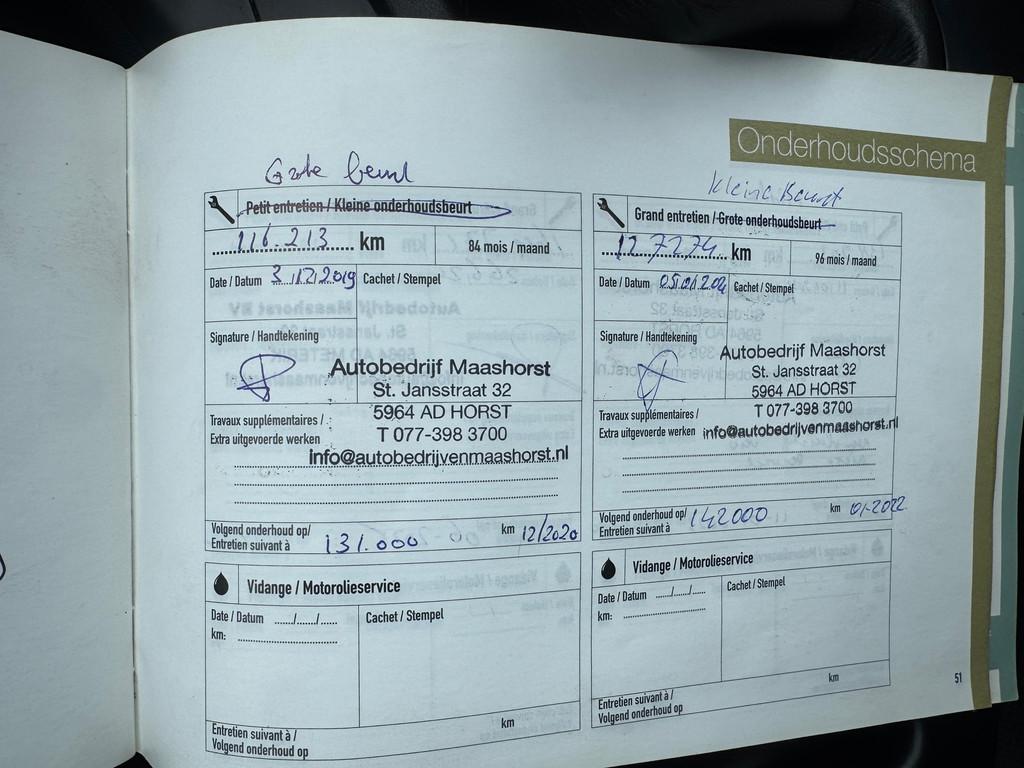 Onderhoudsschema
Grote beurt
Petit entretien / Kleine onderhoudsbeurt
116.213 km
84 mois / maand
Date / Datum 3/12/2019
Cachet / Stempel
Signature / Handtekening
Autobedrijf Maashorst
St. Jansstraat 32
5964 AD HORST
T 077-398 3700
info@autobedrijvenmaashorst.nl
Travaux supplémentaires /
Extra uitgevoerde werken
Volgend onderhoud op/
Entretien suivant à 131.000 km 12/2020
Vidange / Motorolieservice
Date / Datum ....../....../......
Cachet / Stempel
km:
Entretien suivant à /
Volgend onderhoud op
km
Kleine Beurt
Grand entretien / Grote onderhoudsbeurt
127274 km
96 mois / maand
Date / Datum
Cachet / Stempel
Signature / Handtekening
Autobedrijf Maashorst
St. Jansstraat 32
5964 AD HORST
T 077-398 3700
info@autobedrijvenmaashorst.nl
Travaux supplémentaires /
Extra uitgevoerde werken
Volgend onderhoud op/
Entretien suivant à 142000 km 01-2022
Vidange / Motorolieservice
Date / Datum ....../....../......
Cachet / Stempel
km:
Entretien suivant à /
Volgend onderhoud op
km
51